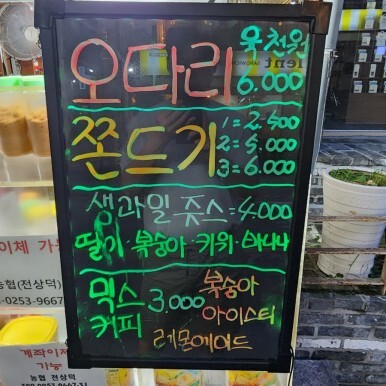 오다리 육천원
6.000
쫀드기 1=2.500
2=4.000
3=6.000
생과일 쥬스=4.000
딸기·복숭아·키위·바나나
믹스 3.000 복숭아
커피 아이스티
레몬에이드
이체 가
농협(전상덕)
-0253-9667
계좌이체
가능
농협 전상덕